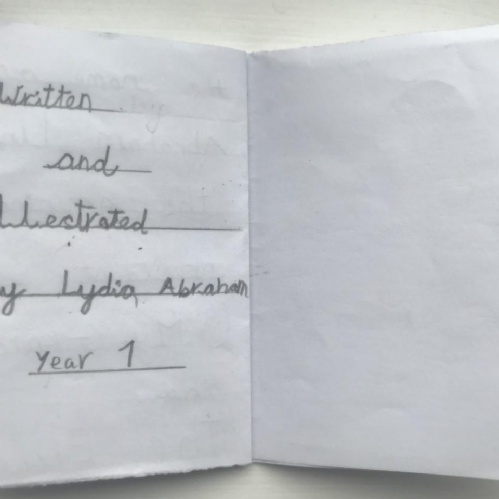 Written
and
Illestrated
by Lydia Abraham
Year 1